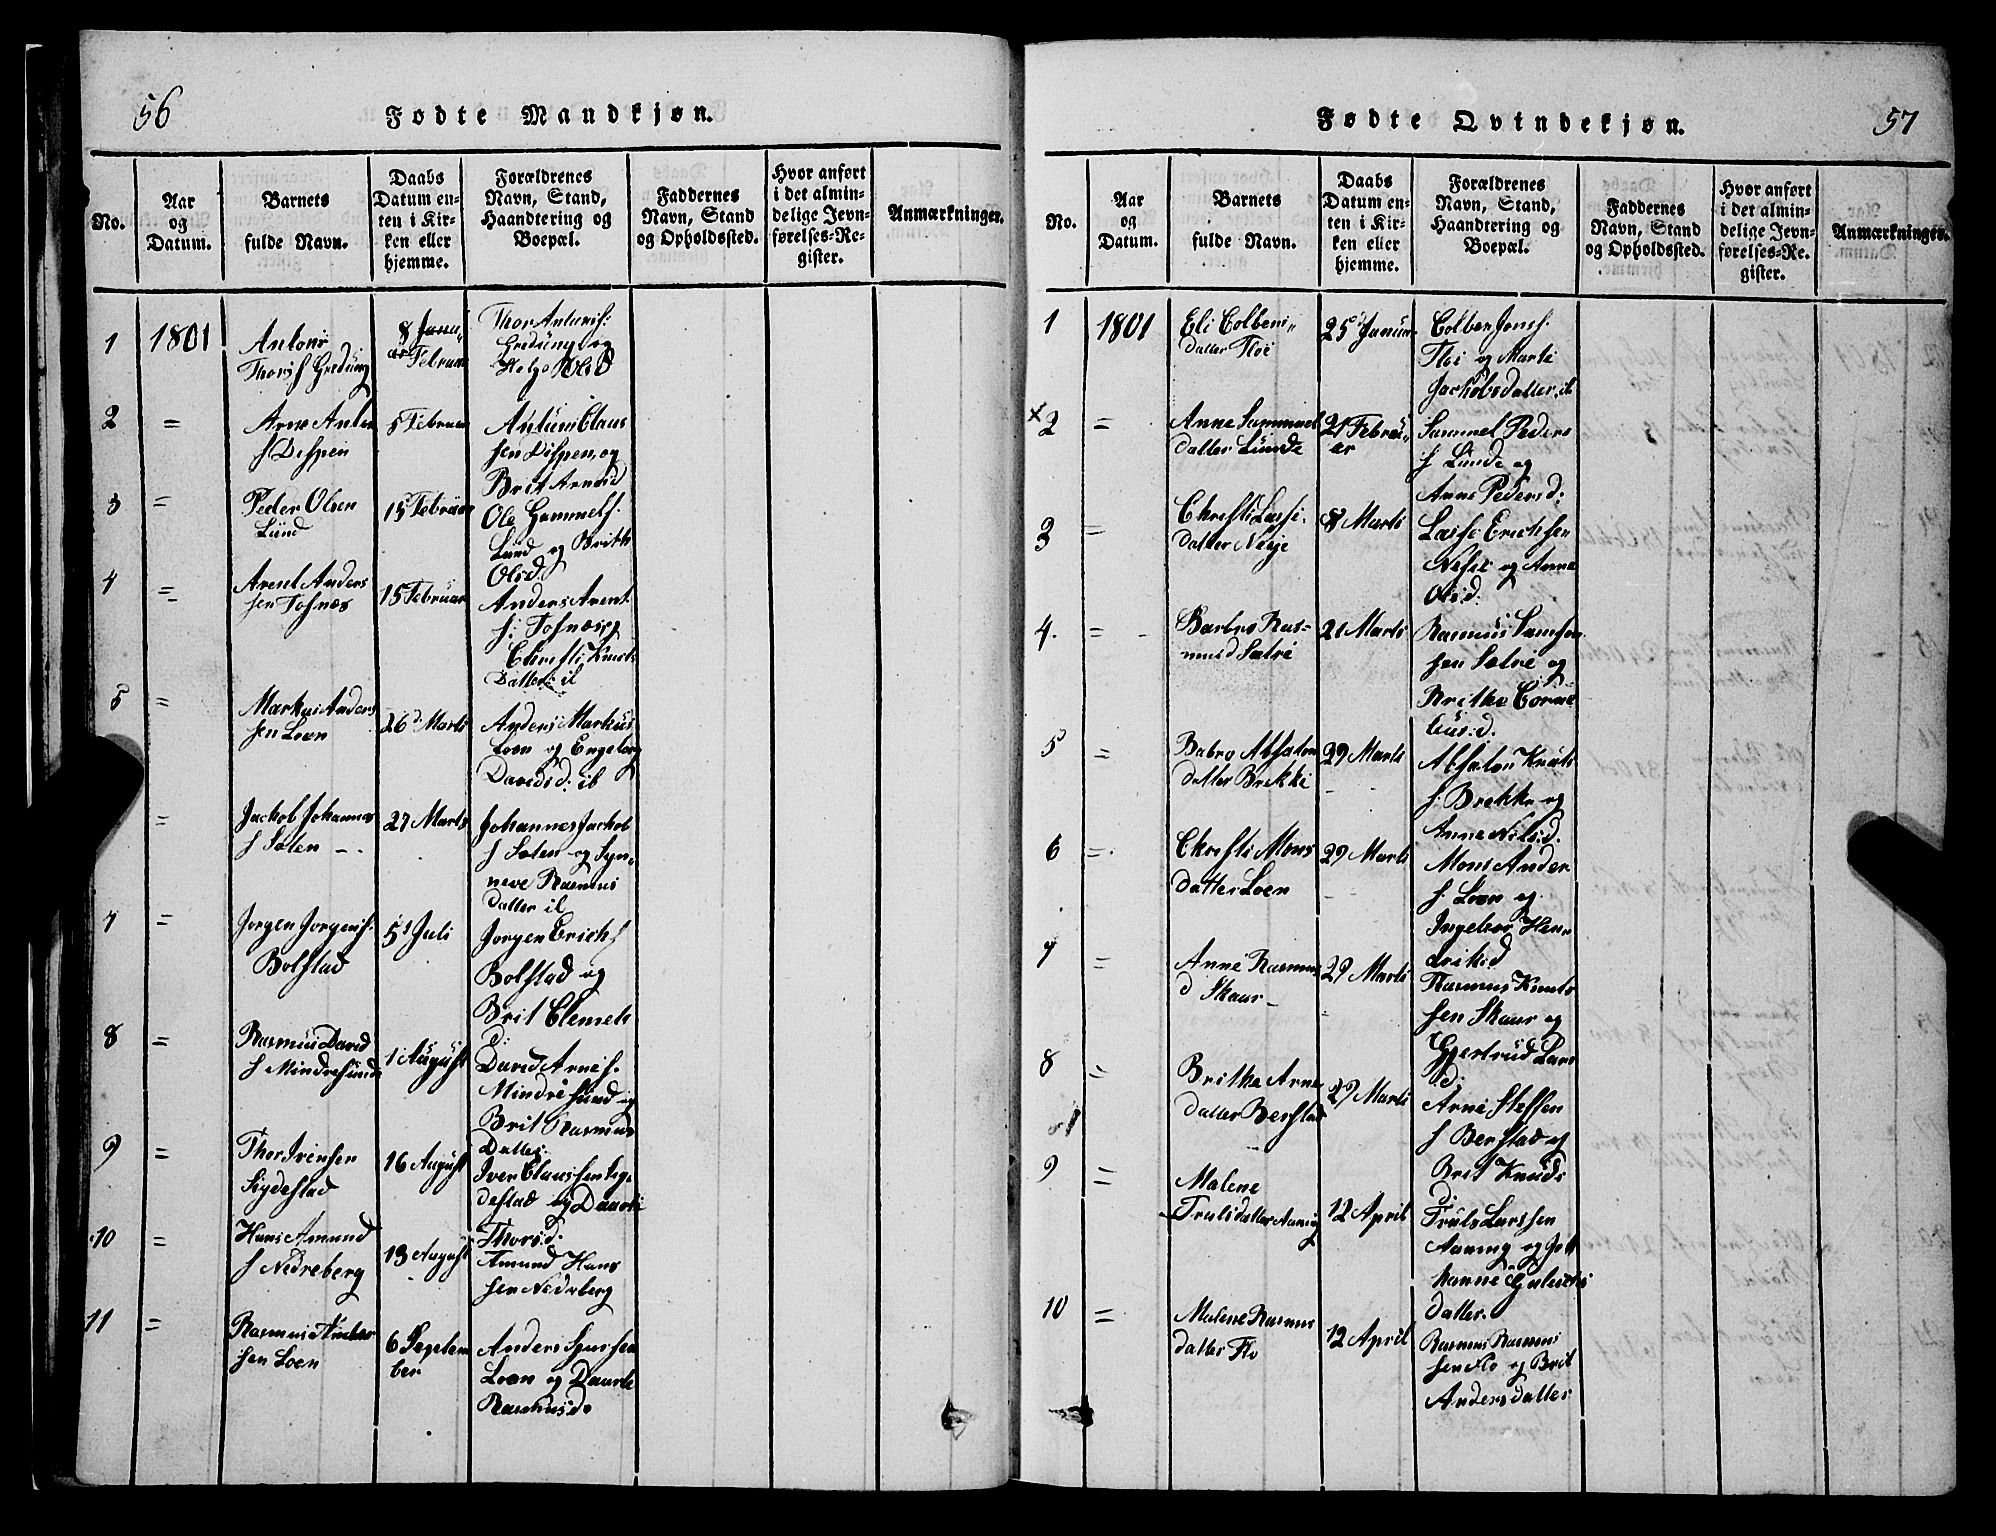 56
Fødte Mandkjøn.
No.
Aar
og
Datum.
Barnets
fulde Navn.
Daabs
Datum en-
ten i Kir-
ken eller
hjemme.
Forældrenes
Navn, Stand,
Haandtering og
Boepæl.
Faddernes
Navn, Stand
og Opholdssted.
Hvor anført
i det almin-
delige Jevn-
førelses-Re-
gister.
Anmærkninger.
1
1801
Antoni
Thors f Gredüng
8 Janu„
ar Februar
Thor Antonis:
Gredüng og
Helge Olsd
2
=
Arne Anten
f Dispen
5 Februar
Antüm Claus
sen Dispen, og
Brit Arnesd
3
=
Peder Olsen
Lünd
15 Februar
Ole Gammelf.
Lund og Brith
Olsd.
4
=
Arent Anders
sen Tosnæs
15 Februar
Anders Arent
f: Tosnæs og
Chrsti Knuts
Datter: il
5
=
Markus Anders
sen Loen
26d Marts
Anders Markus
Loen og Engeborg
Davidsd: ib
=
Jackob Johannes
f Sæten - .
27 Marts
Johannes Jackob
f Sæten og Syn„
neve Rasmus
datter il
7
=
Jorgen Jorgensf:
Bolstad
5d Juli
Jorgen Erichs
Bolstad og
Brit Clemets
d:
8
=
Rasmus David
f Mindresunde
1 August
David Arnes.
Mindresund og
Brit Rasmus
Datter
9
=
Thor Ivensen
Sigdestad
16 August
Iver Claussen Sig„
destad og Daarte
Thorsd.
10
=
Hans Amund
f Nedreberg
13 August
Amund Hans
sen Nedreberg
11
=
Rasmus Anders
sen Loen
6 Septem
ber
Anders Sjursen
Loen og Daarte
Rasmusd.
57
Fødte Qvindekjøn.
No.
Aar
og
Datum.
Barnets
fulde Navn.
Daabs
Datum en-
ten i Kir-
ken eller
hjemme.
Forældrenes
Navn, Stand,
Haandtering og
Boepæl.
Faddernes
Navn, Stand
og Opholdssted.
Hvor anført
i det almin-
delige Jevn-
førelses-Re-
gister.
Anmærkninger.
1
1801
Eli Colbens„
datter Floi
25d Januar
Colben Jons f.
Floi og Marti
Jackobsdatter, ib
x2
=
Anne Sammuel
datter Lünde
21 Febrü„
ar
Samuel Peders
f Lünde og
Anne Pedersd:
3
=
Chresti Lasse„
datter Nesje
8 Marts
Lasse Erichsen
Nesje og Anne
Olsd:
4.
=
Barbro Ras-
musd Sætre
21 Marts
Rasmus Samson
sen Sætre og
Brithe Corne
liusd.
5
=
Babro Absalon
datter Brekke
29 Marts
Absalon Knuts
f: Brekke og
Anne Nilsd.
6
=
Chresti Mons
datter Loen
29 Marts
Mons Ander
f. Loen og
Ingebor Hen„
driksd
7
=
Anne Rasmus
d Skaar -
29 Marts
Rasmus Knuts
sen Skaar og
Gjertrud Lars
d:
8
=
Brithe Arne
datter Berstad
29 Marts
Arne Steffen
f Berstad og
Brit Knuds
d:
9
=
Malene
Trulsdatter Aaning
12 April
Truls Larssen
Aaning og Joh
hanne Guleichs
datter.
10
=
Malene Rasmus
datter Flo
12 April
Rasmus Rasmus
sen Flo og Brit
Andersdatter